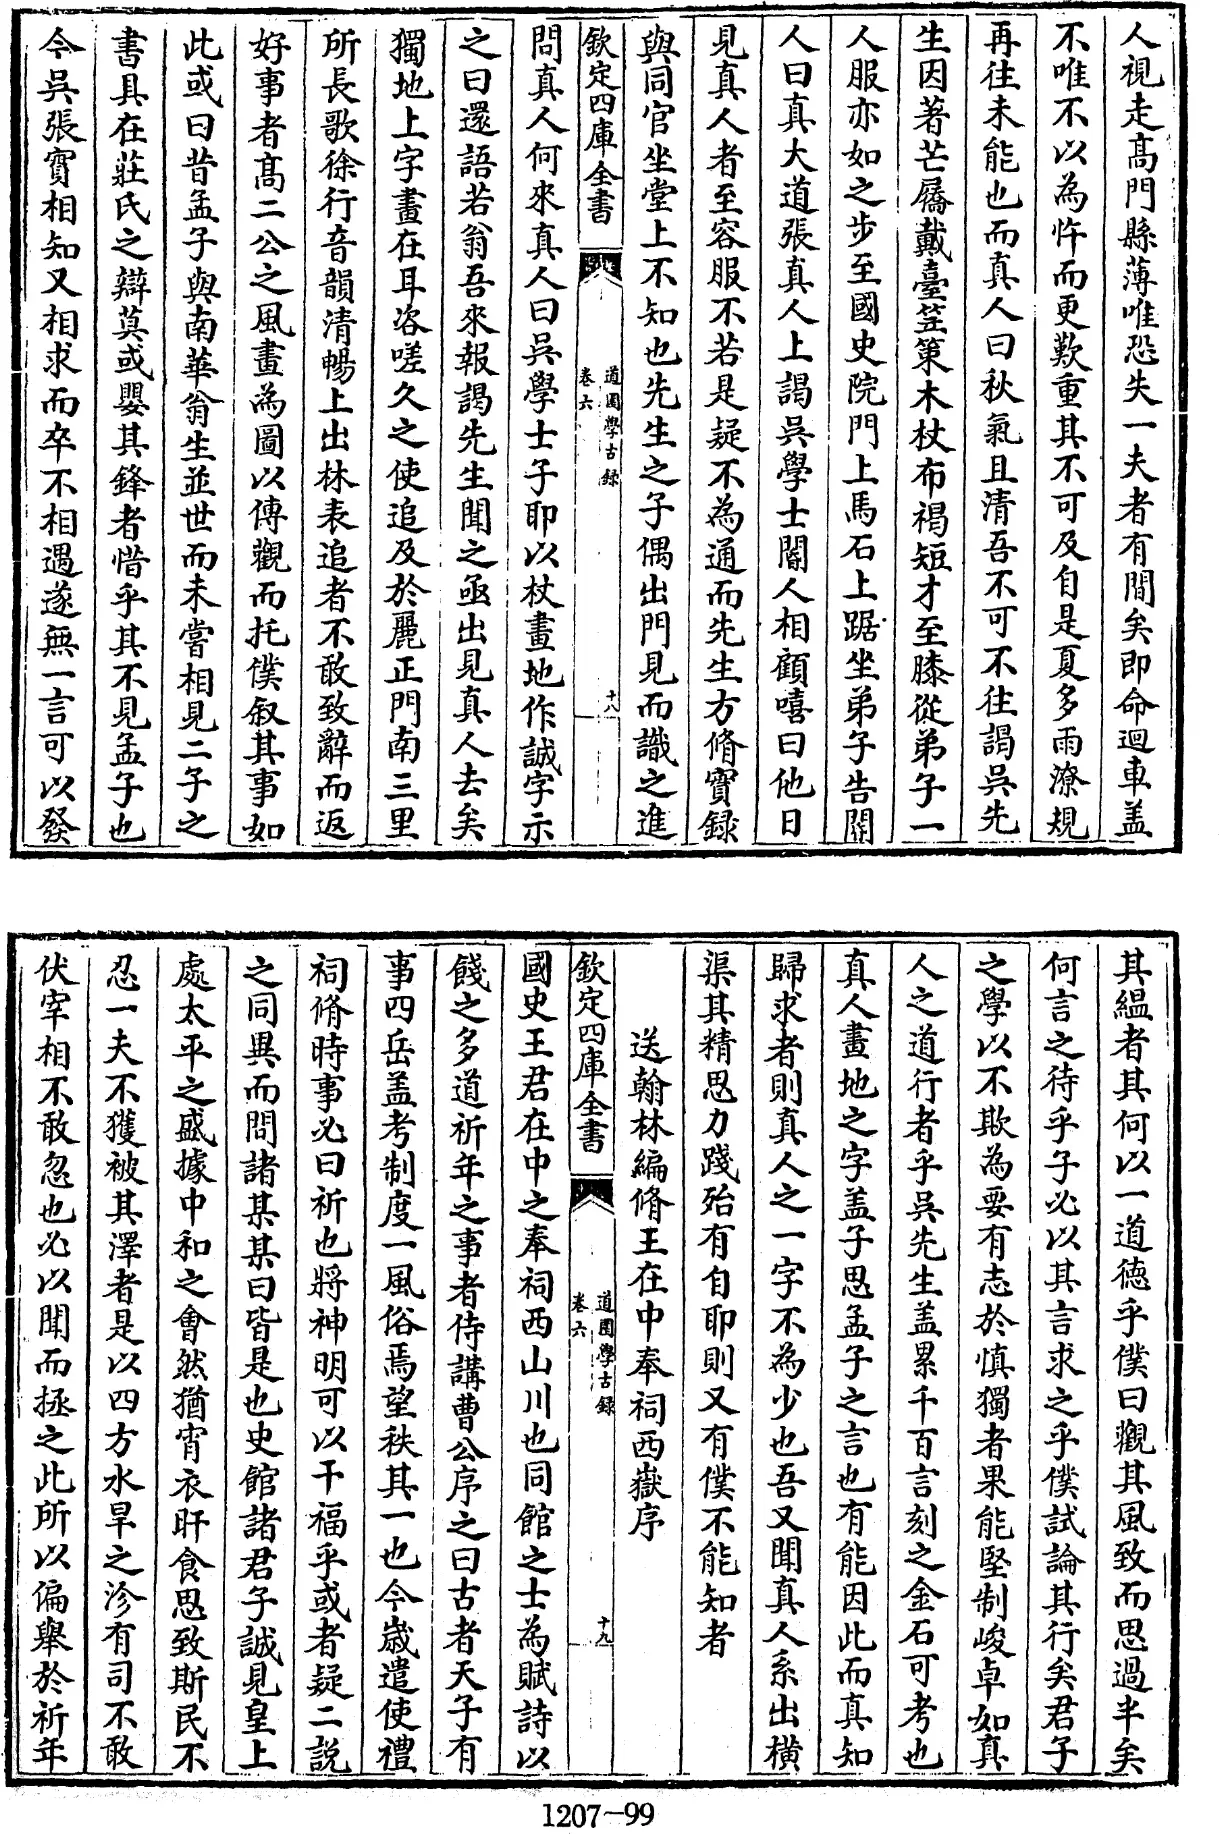 人視走高門縣薄唯恐失一夫者有間矣即命迴車盖
不唯不以為忤而更歎重其不可及自是夏多雨潦規
再往未能也而真人曰秋氣且清吾不可不往謁吳先
生因著芒屩戴臺笠策木杖布褐短才至膝從弟子一
人服亦如之步至國史院門上馬石上踞坐弟子告閽
人曰真大道張真人上謁吳學士閽人相顧嘻曰他日
見真人者至容服不若是疑不為通而先生方脩實録
與同官坐堂上不知也先生之子偶出門見而識之進
欽定四庫全書
道園學古録
卷六
十八
問真人何來真人曰吳學士子耶以杖畫地作誠字示
之曰還語若翁吾來報謁先生聞之亟出見真人去矣
獨地上字畫在耳咨嗟久之使追及於麗正門南三里
所長歌徐行音韻清暢上出林表追者不敢致辭而返
好事者髙二公之風畫為圖以傳觀而托僕叙其事如
此或曰昔孟子與南華翁生並世而未嘗相見二子之
書具在莊氏之辯莫或嬰其鋒者惜乎其不見孟子也
今吳張實相知又相求而卒不相遇遂無一言可以發
其縕者其何以一道德乎僕曰觀其風致而思過半矣
何言之待乎子必以其言求之乎僕試論其行矣君子
之學以不欺為要有志於慎獨者果能堅制峻卓如真
人之道行者乎吳先生盖累千百言刻之金石可考也
真人畫地之字盖子思孟子之言也有能因此而真知
歸求者則真人之一字不為少也吾又聞真人系出橫
渠其精思力踐殆有自耶則又有僕不能知者
送翰林編脩王在中奉祠西嶽序
欽定四庫全書
道園學古録
卷六
十九
國史王君在中之奉祠西山川也同館之士為賦詩以
餞之多道祈年之事者侍講曹公序之曰古者天子有
事四岳盖考制度一風俗焉望秩其一也今歲遣使禮
祠脩時事必曰祈也將神明可以干福乎或者疑二説
之同異而問諸某某曰皆是也史館諸君子誠見皇上
處太平之盛據中和之會然猶宵衣旰食思致斯民不
忍一夫不獲被其澤者是以四方水旱之沴有司不敢
伏宰相不敢忽也必以聞而拯之此所以偏舉於祈年
1207-99